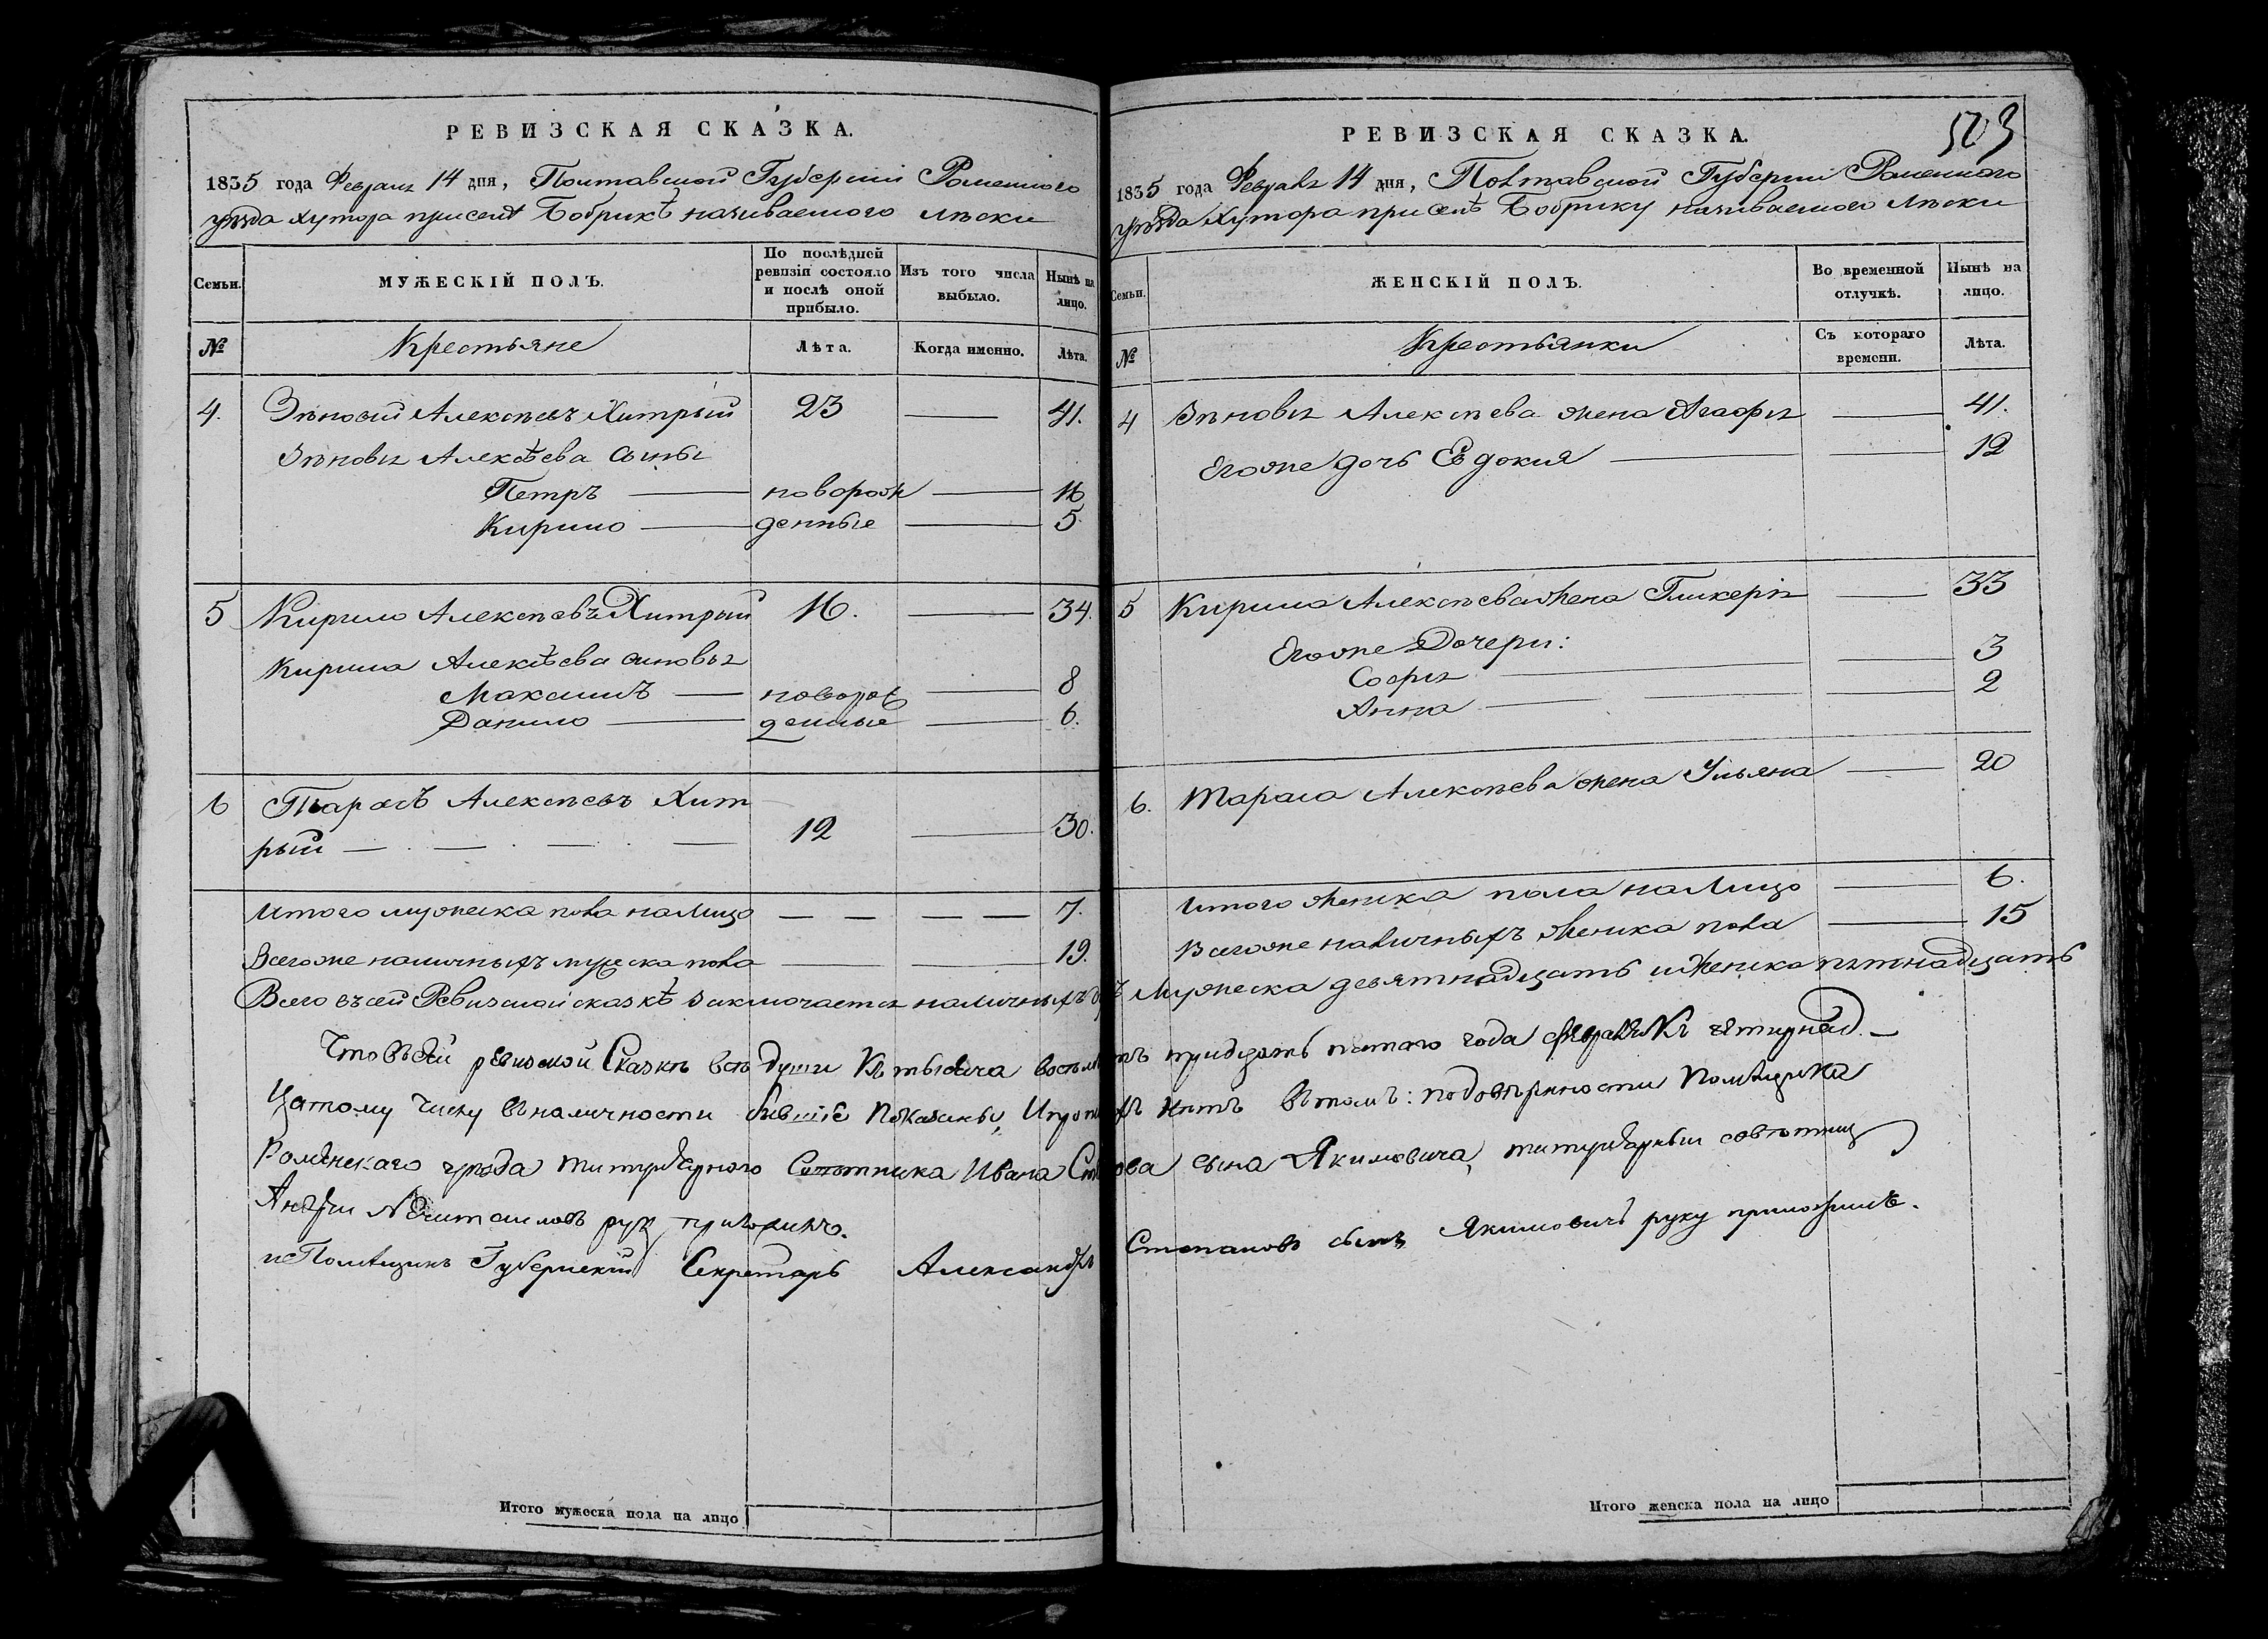 РЕВИЗСКАЯ СКАЗКА.
1835 года Февраля 14 дня, Полтавской Губерніи Роменского
уѣзда Хутора при селѣ Бобрикѣ називаемого Лѣски
Семьи.
МУЖЕСКІЙ ПОЛЪ.
По послѣдней ревизіи состояло и послѣ оной прибыло.
Изъ того числа выбыло.
Нынѣ на лицо.
№
Крестьяне
Лѣта.
Когда именно.
Лѣта.
4. Зѣновій Алексѣевъ Хитрый 23 — 41.
Зѣновія Алексѣева сыны
Петръ — новорож — 16
Кирило — денные — 5.
5 Кирило Алексѣевъ Хитрый 16. — 34.
Кирила Алексѣева синовья
Максимъ — новорож — 8
Данило — денные — 6.
6 Тарасъ Алексѣевъ Хит
рый — — — — 12 — 30.
Итого мужеска пола на лицо — — — — 7.
Всего же наличныхъ мужеска пола — — 19.
РЕВИЗСКАЯ СКАЗКА.
503
1835 года Февраля 14 дня, Полтавской Губерніи Роменского
уѣзда Хутора при селѣ Бобрику називаемого Лѣски
Семьи.
ЖЕНСКІЙ ПОЛЪ.
Во временной отлучкѣ.
Нынѣ на лицо.
№
Крестьянки
Съ котораго времени.
Лѣта.
4 Зѣновія Алексѣева жена Агафія — 41.
Его же дочь Евдокия — — 12
5 Кирила Алексѣева жена Гликерія — 33
Его же Дочери:
Софія — — 3
Анна — — 2
6. Тараса Алексѣева жена Ульяна — 20
Итого женска пола на лицо — 6.
Всего же наличныхъ женска пола — 15
Всего въ сей Ревизской сказкѣ заключается наличныхъ мужеска девятнадцать и женска пятнадцать
Что въ сей ревизской Сказкѣ всѣ души къ тысяча восемъ тридцать пятого года февраля къ четырнад —
цатому числу въ наличности бившіе показаны, и нѣтъ въ томъ: по довѣрѣнности Помѣщика
Роменскаго уѣзда титулярного Совѣтника Ивана сына Якимовича, титулярный совѣтник
Андрѣй руку приложилъ.
и Помѣщикъ Губернский Секретарь Александръ Степановъ сынъ Якимовичъ руку приложилъ.
Итого мужеска пола на лицо
Итого женска пола на лицо